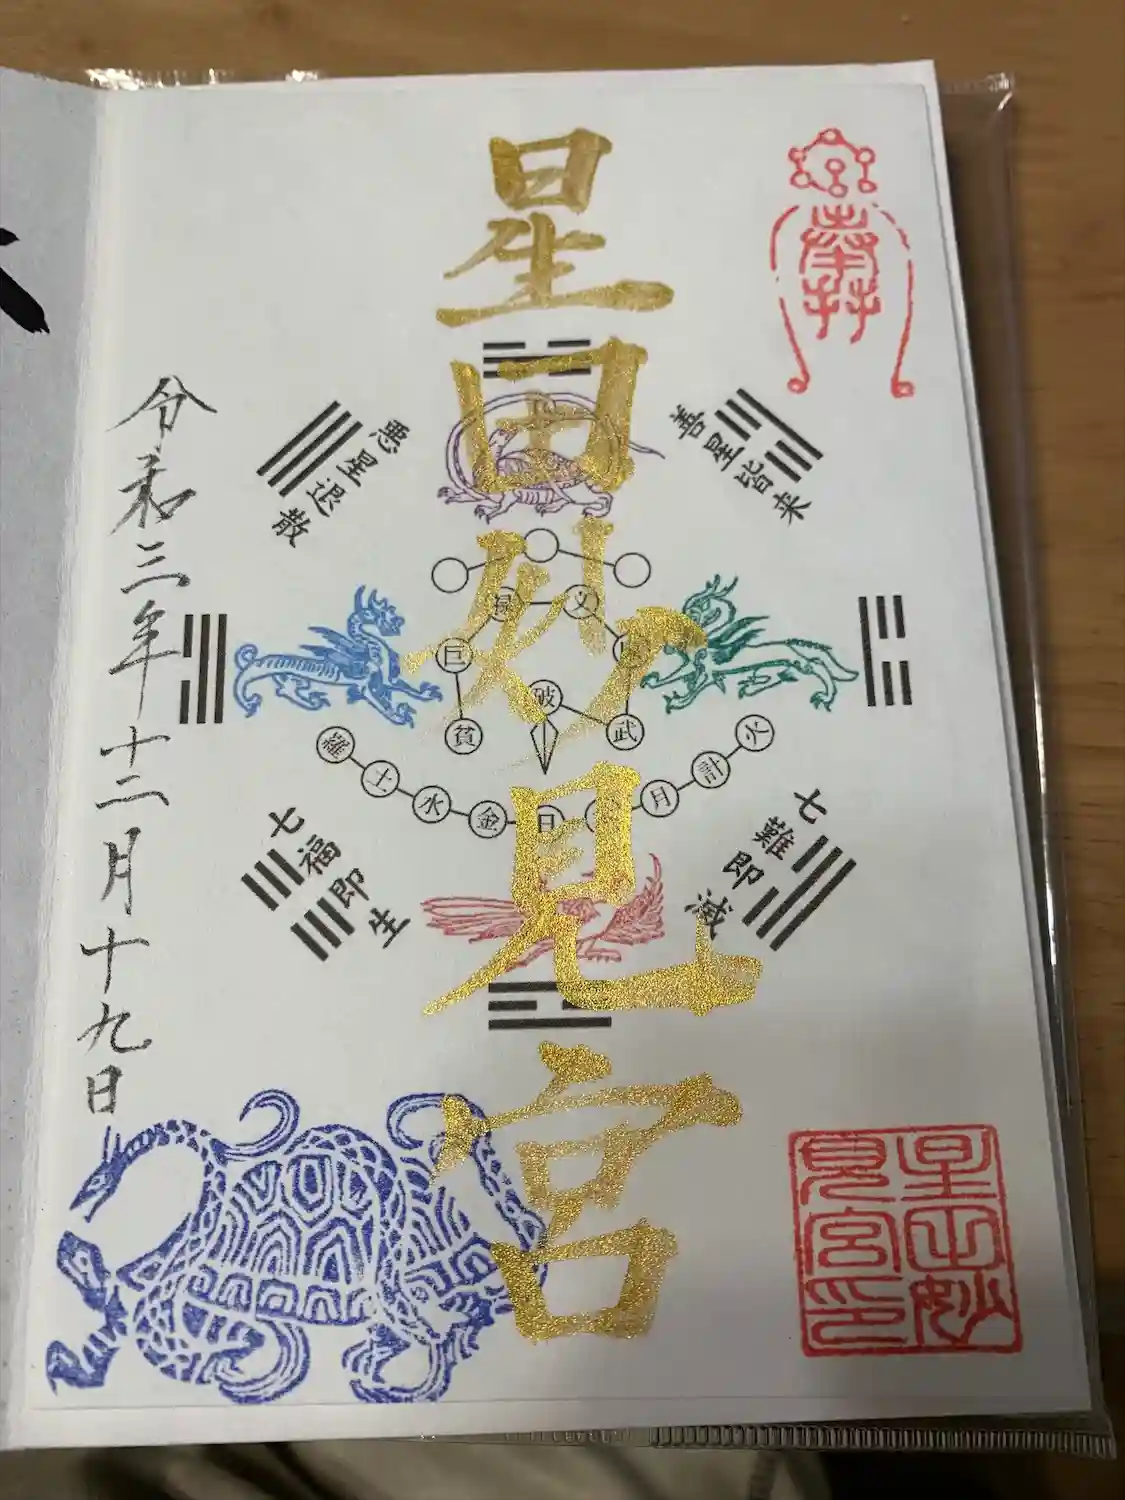 星田妙見宮
善星皆来
悪星退散
七難即滅
七福即生
禄
文
巨
破
貧
武
羅
土
水
金
日
月
計
火
令和三年十二月十九日
星田妙
見宮印